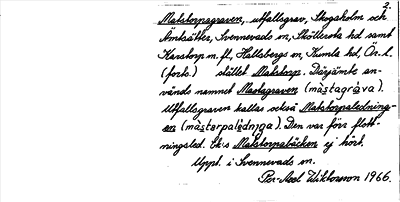 2.
Matstorpagraven, utfallsgrav, Skogaholm och
Ämbsätter, Svennevads sn, Sköllersta hd samt
Karstorp m. fl., Hallsbergs sn, Kumla hd, Ör. l.
(forts.) stället Matstorp. Därjämte an-
vänds namnet Mastagraven (màstagràva).
Utfallsgraven kallas också Matstorpaledning-
en (màstarpalèdnɪŋa). Den var förr flott-
ningsled. Ek:s Matstorpabäcken ej hört.
Uppt. i Svennevads sn.
Per-Axel Wiktorsson 1966.